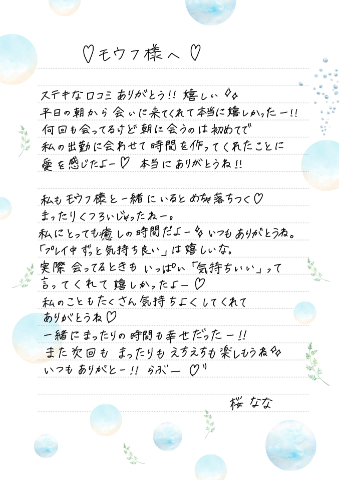 ♡モウフ様へ♡
ステキな口コミありがとう!! 嬉しい
平日の朝から会いに来てくれて本当に嬉しかったー!!
何回も会ってるけど朝に会うのは初めてで
私の出勤に合わせて時間を作ってくれたことに
愛を感じたよー♡ 本当にありがとうね!!
私もモウフ様と一緒にいるとめちゃ落ちつく♡
まったりくつろいじゃったねー。
私にとっても癒しの時間だよー いつもありがとうね。
「プレイ中ずっと気持ち良い」は嬉しいな。
実際会ってるときもいっぱい「気持ちいい」って
言ってくれて嬉しかったよー♡
私のこともたくさん気持ちよくしてくれて
ありがとうね♡
一緒にまったりの時間も幸せだったー!!
また次回もまったりもえちえちも楽しもうね
いつもありがとー!! らぶー♡
桜 なな